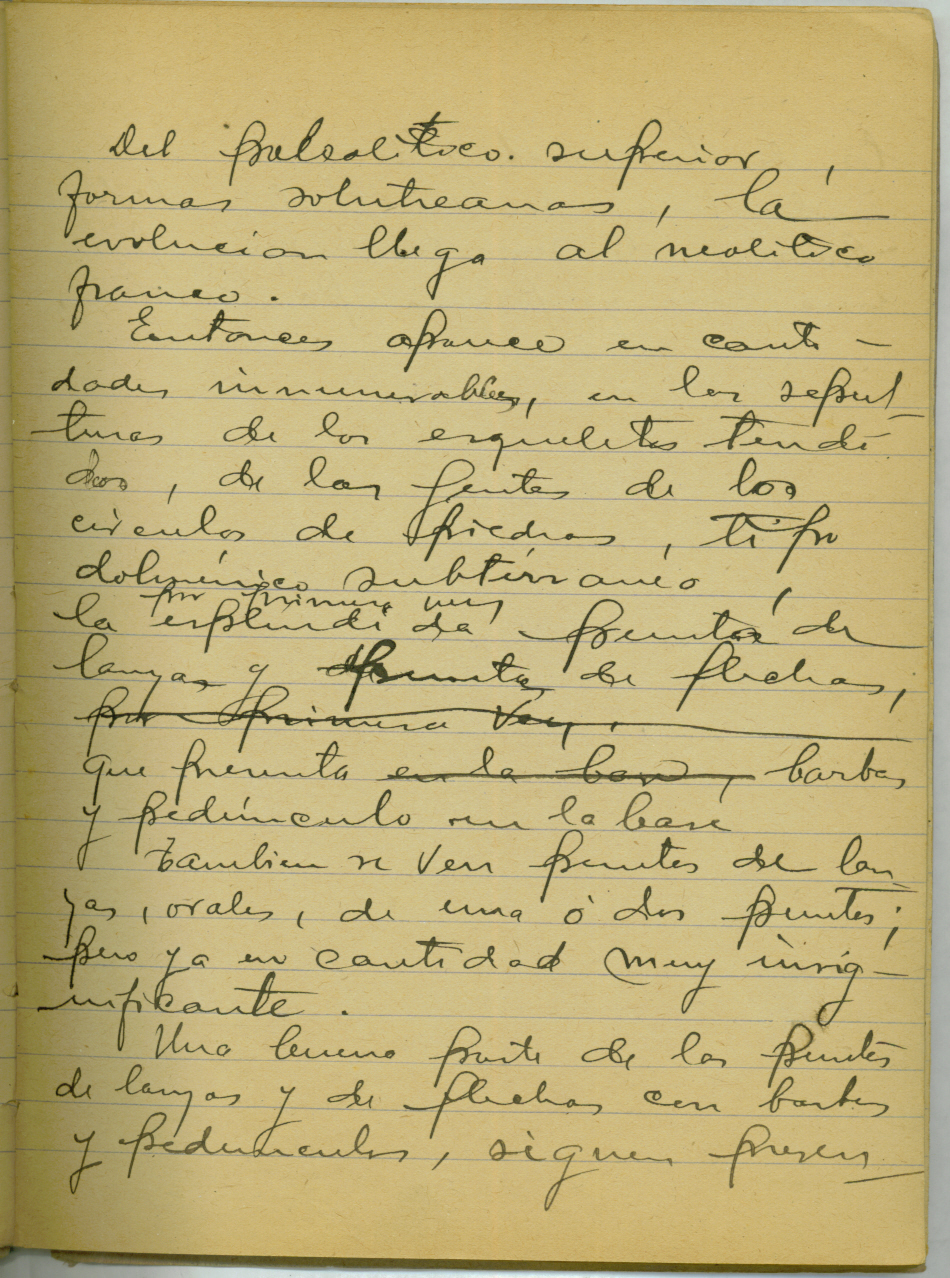 Del paleolitico superior,
formas solutreanas, la
evolucion llega al neolitico
franco.
Entonces aparece en canti-
dades innumerables, en las sepul-
turas de los esqueletos tendi-
dos, de las gentes de los
circulos de piedras, tipo
dolménico subterraneo,
por primera vez
la esplendida punta de
lanzas y punta de flechas,
por primera vez,
que presenta en la base, barbas
y pedúnculo en la base
Tambien se ven puntas de lan
zas, ovales, de una ó dos puntas;
pero ya en cantidad muy insig-
nificante.
Una buena parte de las puntas
de lanzas y de flechas con barbas
y pedunculos, siguen presen